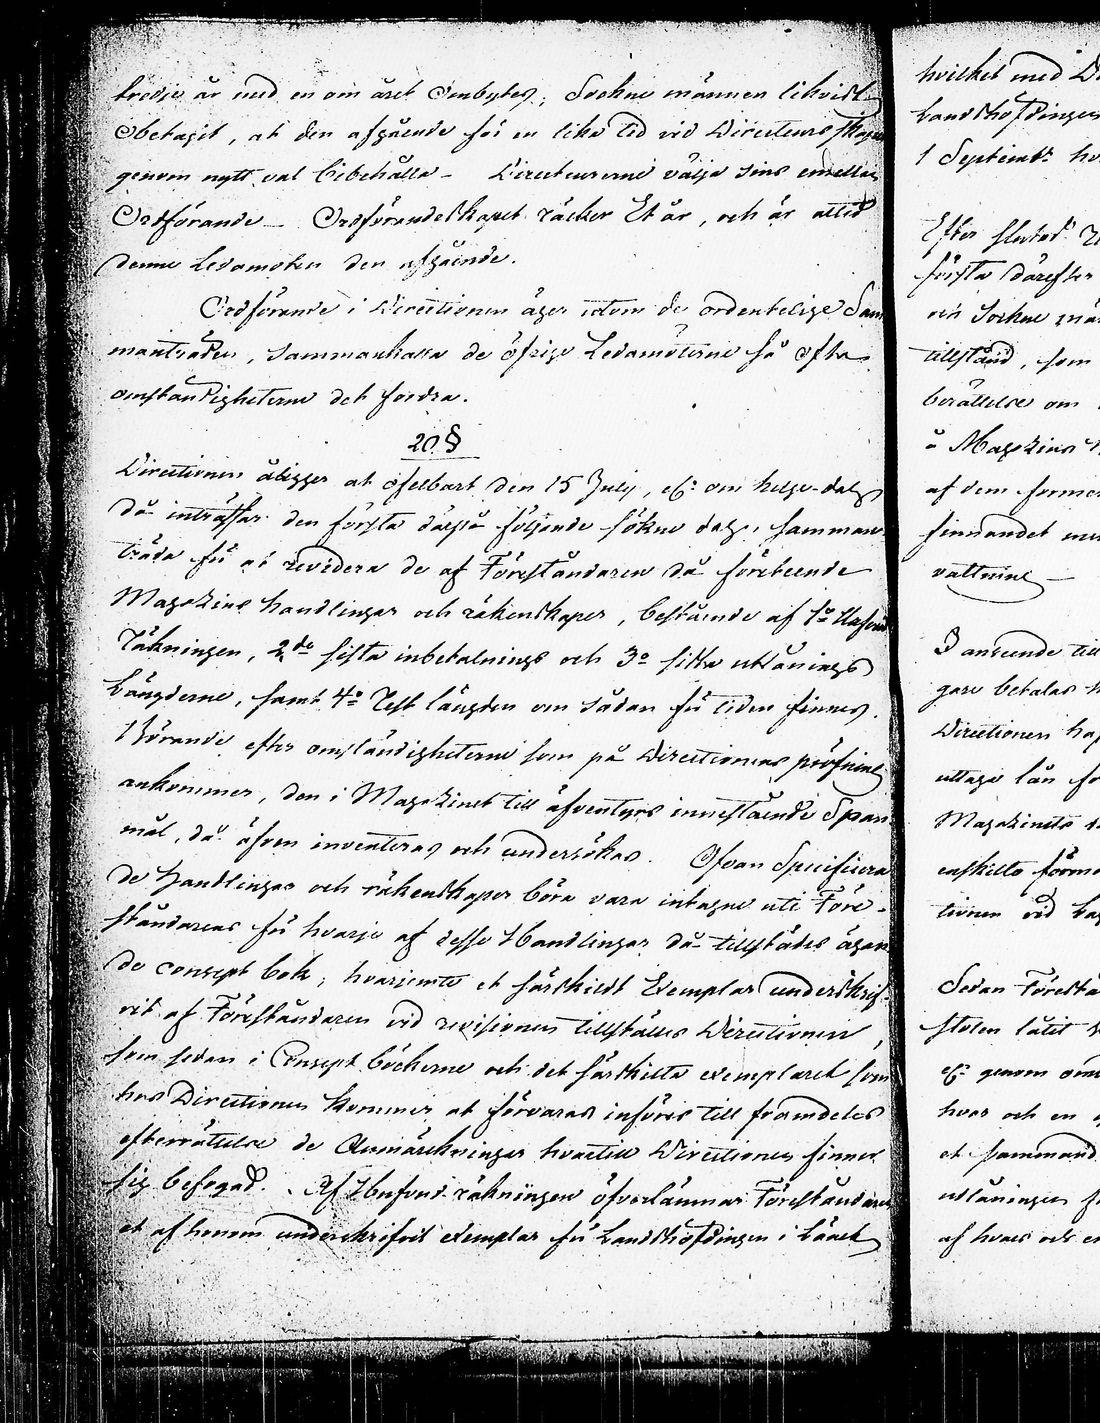 tredje år med en om året ombytes; Sockne männen likväl
obetagit, at den afgående för en lika tid vid Directeurs skapet
genom nytt val bibehålla – Directeurerne välja sins emellan
Ordförande – Ordförandeskapet räcker Et år, och är altid
denne Ledamoten den afgående.
Ordförande i Directionen äger utom de ordentelige Sam
manträden, sammankalla de öfrige Ledamöterne så ofta
omständigheterne det fordra.
20 §
Directionen åligger at ofelbart den 15 July, eller om helge-dag
då inträffar den första därpå följande söкne dag, samman
träda för at revidera de af Föreståndaren då företeende
Magazins handlingar och räkenskaper, bestående af 1o
Räkningen, 2do sista inbetalnings och 3o sista utlånings
Längderne, samt 4o Rest längden om sådan för tiden finnes.
Börande efter omständigheterne som på Directionens pröfning
ankommer, den i Magazinet till äfventyrs innestående Span
mål, då äfven inventeras och undersökas. Ofvan Specificera
de Handlingar och räkenskaper böra vara intagne uti Före-
ståndarens för hvarje af desse Handlingar då tillstädes ägan
de concept bok; hvarjemte et särskildt Exemplar underskrif-
vit af Föreståndaren vid revisionen tillställes Directionen,
som sedan i Concept böckerne och det särskilta exemplaret som
hos Directionen kommer at förvaras införes till framdeles
efterrättelse de Anmärckningar hvartill Directionen finner
sig befogad. Af Hufvud-räkningen öfverlämnar Föreståndaren
et af honom underskrifvit exemplar för Landshöfdingen i Länet
hvilket med
Landshöfdingen
1 Septembr
Efter slutad
första därefter
och Sockne män
tillstånd, som
berättelse om
å Magazins
af dem
finnandet
valtning –
I anseende till
gare betalas
Directionen
uttaga lån
Magazinets
enskilta
tionen vid
Sedan Förestå
låtit
eller genom
hvar och en
et sammand
utlåningen
af hvars och